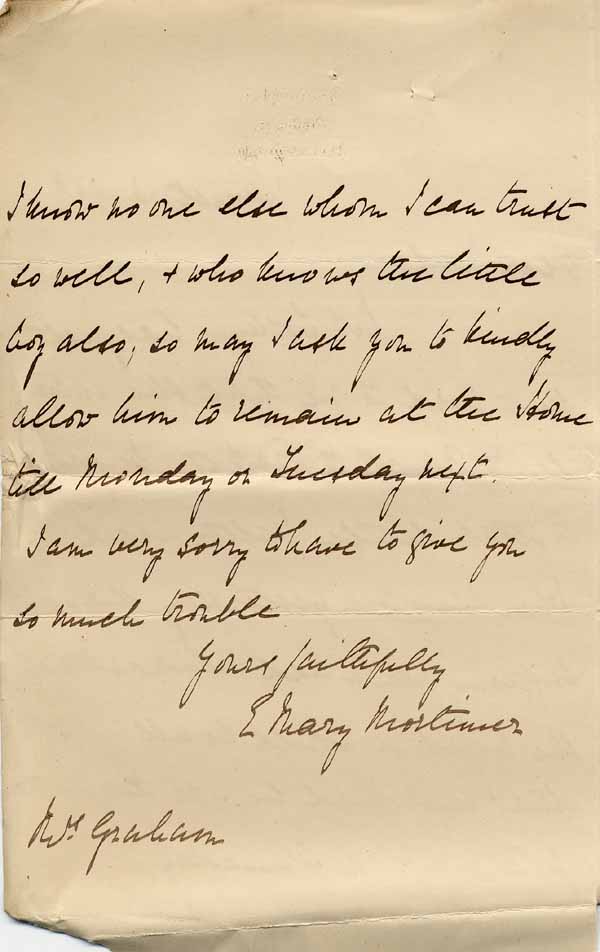 I know no one else whom I can trust
so well, + who knows the little
boy also, so may I ask you to kindly
allow him to remain at the Home
till Monday or Tuesday next.
I am very sorry to have to give you
so much trouble
Yours faithfully
E Mary Mortimer
Mrs Graham